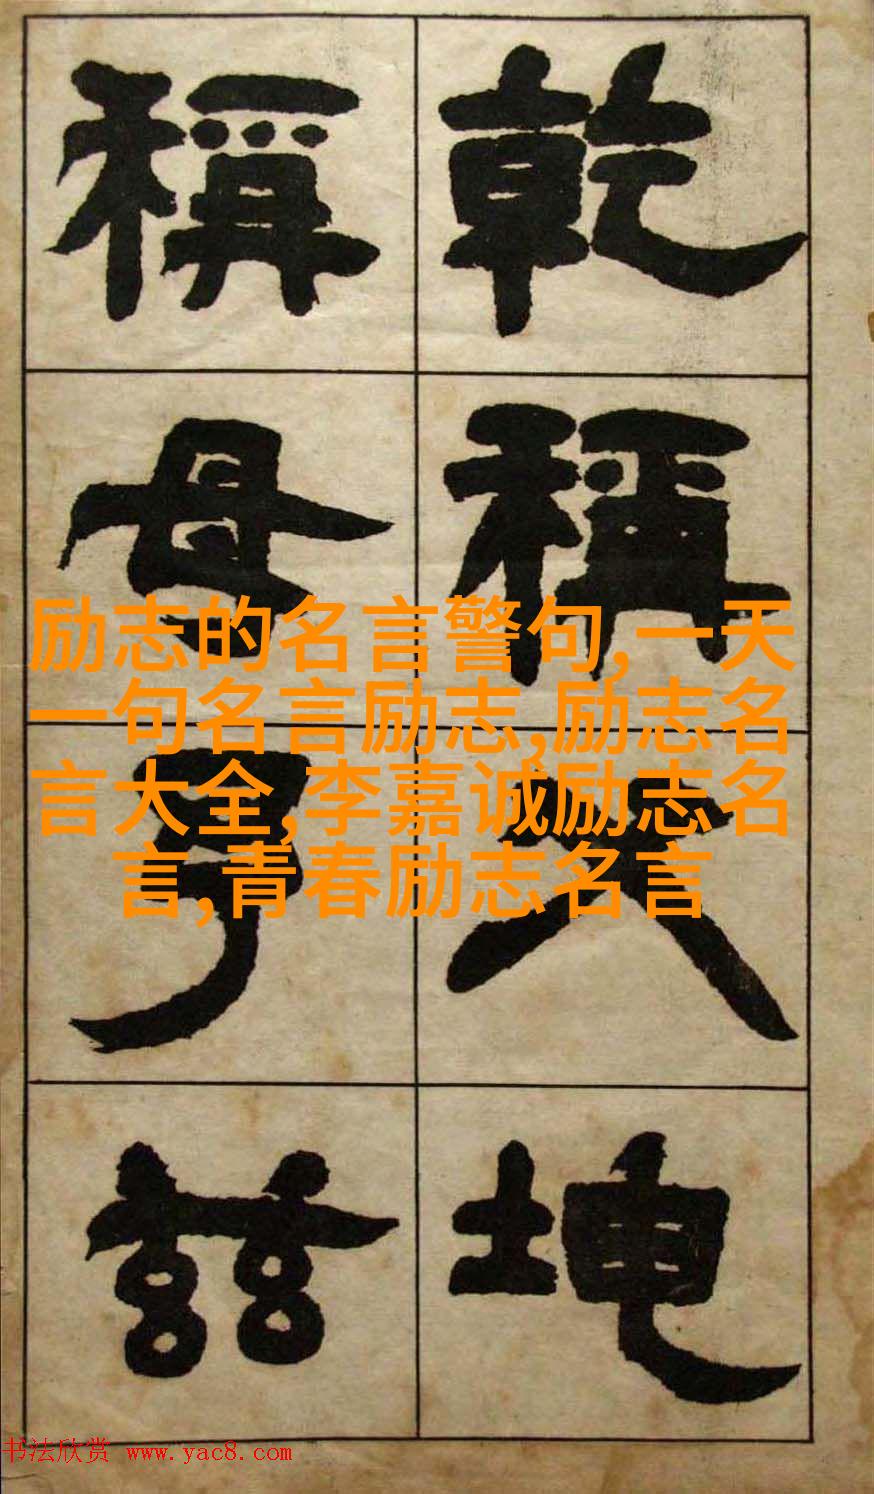 乾稱父坤
稱母予茲
励志的名言警句,一天
一句名言励志,励志名
言大全,李嘉诚励志名
言,青春励志名言
书法欣赏 www.yac8.com